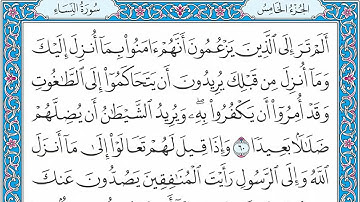 الجزء الخامس سورة النساء
أَلَمْ تَرَ إِلَى ٱلَّذِينَ يَزْعُمُونَ أَنَّهُمْ ءَامَنُوا۟ بِمَآ أُنزِلَ إِلَيْكَ
وَمَآ أُنزِلَ مِن قَبْلِكَ يُرِيدُونَ أَن يَتَحَاكَمُوٓا۟ إِلَى ٱلطَّٰغُوتِ
وَقَدْ أُمِرُوٓا۟ أَن يَكْفُرُوا۟ بِهِۦۖ وَيُرِيدُ ٱلشَّيْطَٰنُ أَن يُضِلَّهُمْ
ضَلَٰلًۢا بَعِيدًا ٦٠ وَإِذَا قِيلَ لَهُمْ تَعَالَوْا۟ إِلَىٰ مَآ أَنزَلَ
ٱللَّهُ وَإِلَى ٱلرَّسُولِ رَأَيْتَ ٱلْمُنَٰفِقِينَ يَصُدُّونَ عَنكَ